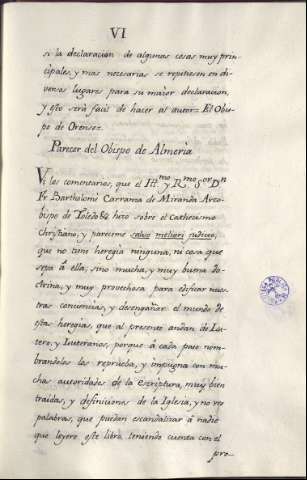 VI
si la declaracion de algunas cosas muy prin-
cipales, y mas necesarias se repitiesen en di-
versos lugares para su maior declaracion,
y esto será facil de hacer al autor: El Obis-
po de Orense.
Parecer del Obispo de Almeria
Vi los comentarios, que el Ill.mo y R.mo S.or D.n
Fr. Bartholomé Carranza de Miranda Arzo-
bispo de Toledo hizo sobre el Cathecismo
Christiano, y pareceme salvo meliori judicio,
que no tiene heregia ninguna, ni cosa que
sepa á ella, sino mucha, y muy buena do-
ctrina, y muy provechosa para edificar nues-
tras conciencias, y desengañar el mundo de
estas heregias, que al presente andan de Lu-
tero, y Luteranos, porque á cada paso nom-
brandolas las reprueba, y impugna con mu-
chas autoridades de la Escriptura, muy bien
traidas, y definiciones de la Iglesia, y no veo
palabras, que puedan escandalizar á nadie
que leyere este libro, teniendo cuenta con el
pro-